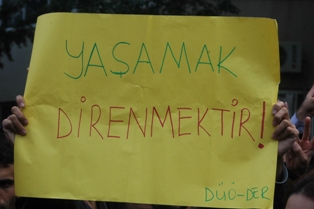 YAŞAMAK
DİRENMEKTİR!
DÜÖ-DER